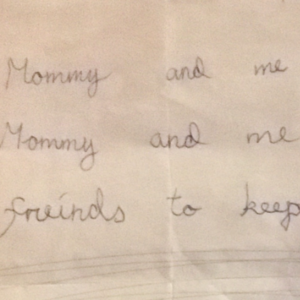 Mommy and me
Mommy and me
freinds to keep